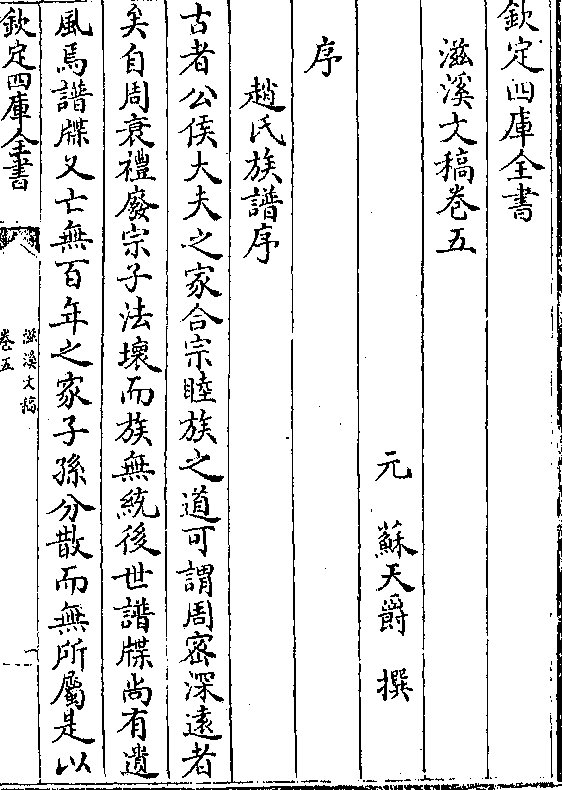 欽定四庫全書
滋溪文稿卷五
元 蘇天爵 撰
序
趙氏族譜序
古者公侯大夫之家合宗睦族之道可謂周密深遠者
矣自周衰禮廢宗子法壞而族無統後世譜牒尚有遺
風焉譜牒又亡無百年之家子孫分散而無所屬是以
欽定四庫全書
滋溪文稿
卷五
一